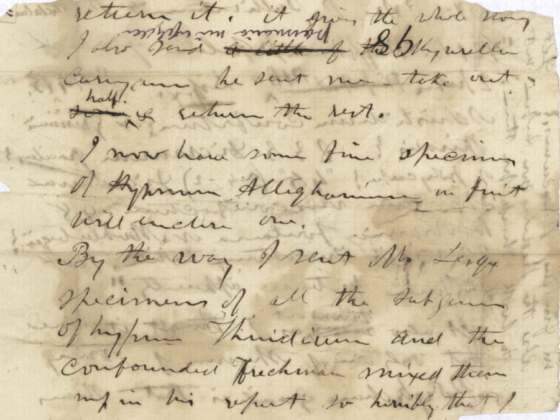 return it. it gives the whole story
I also send a little of the Hypnella
86
he sent me take out
half
some & return the rest.
I now have some fine specimens
of Hypnum Alleghaniense in fruit
will enclose one.
By the way I sent Mr. Lesqx
specimens of all the subgenus
of hypnum Thuidium and the
confounded Frenchman mixed them
up in his report so horribly that I